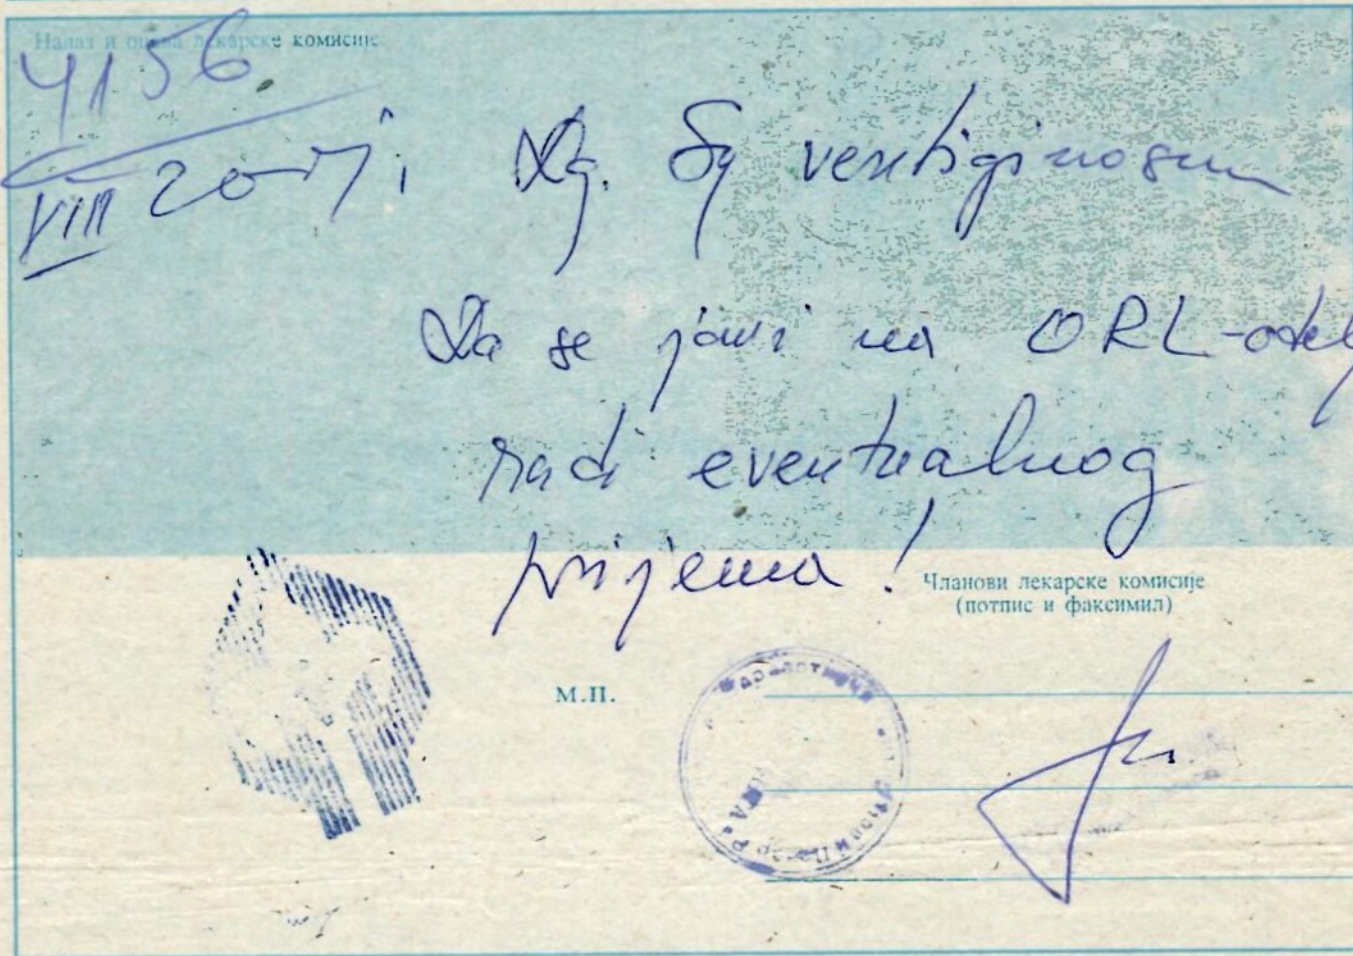 Налаз и оцена лекарске комисије
4156
VIII
Dg. Sy vertiginosum
Da se javi na ORL-odelj
radi eventualnog
prijema!
Чланови лекарске комисије
(потпис и факсимил)
М.П.